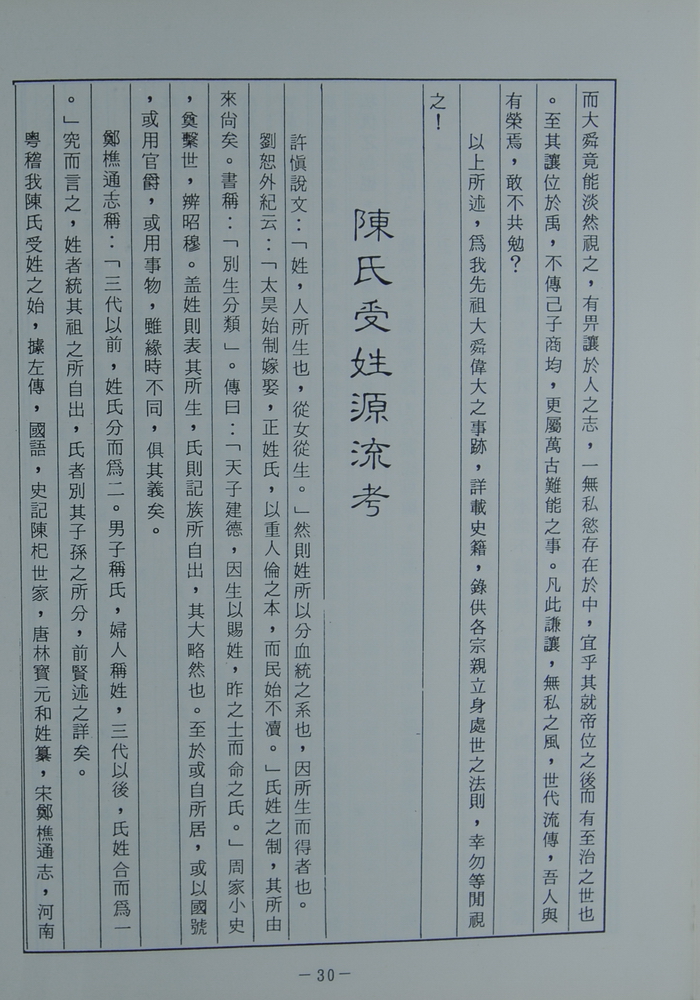 而大舜竟能淡然視之，有畀讓於人之志，一無私慾存在於中，宜乎其就帝位之後而有至治之世也
。至其讓位於禹，不傳己子商均，更屬萬古難能之事。凡此謙讓，無私之風，世代流傳，吾人與
有榮焉，敢不共勉？
以上所述，爲我先祖大舜偉大之事跡，詳載史籍，錄供各宗親立身處世之法則，幸勿等閒視
之！
陳氏受姓源流考
許愼說文：「姓，人所生也，從女從生。」然則姓所以分血統之系也，因所生而得者也。
劉恕外紀云：「太昊始制嫁娶，正姓氏，以重人倫之本，而民始不凟。」氏姓之制，其所由
來尚矣。書稱：「別生分類」。傳曰：「天子建德，因生以賜姓，胙之士而命之氏。」周家小史
，奠繫世，辨昭穆。盖姓則表其所生，氏則記族所自出，其大略然也。至於或自所居，或以國號
，或用官爵，或用事物，雖緣時不同，俱其義矣。
鄭樵通志稱：「三代以前，姓氏分而爲二。男子稱氏，婦人稱姓，三代以後，氏姓合而爲一
。」究而言之，姓者統其祖之所自出，氏者別其子孫之所分，前賢述之詳矣。
粵稽我陳氏受姓之始，據左傳，國語，史記陳杞世家，唐林寶元和姓纂，宋鄭樵通志，河南
－30－